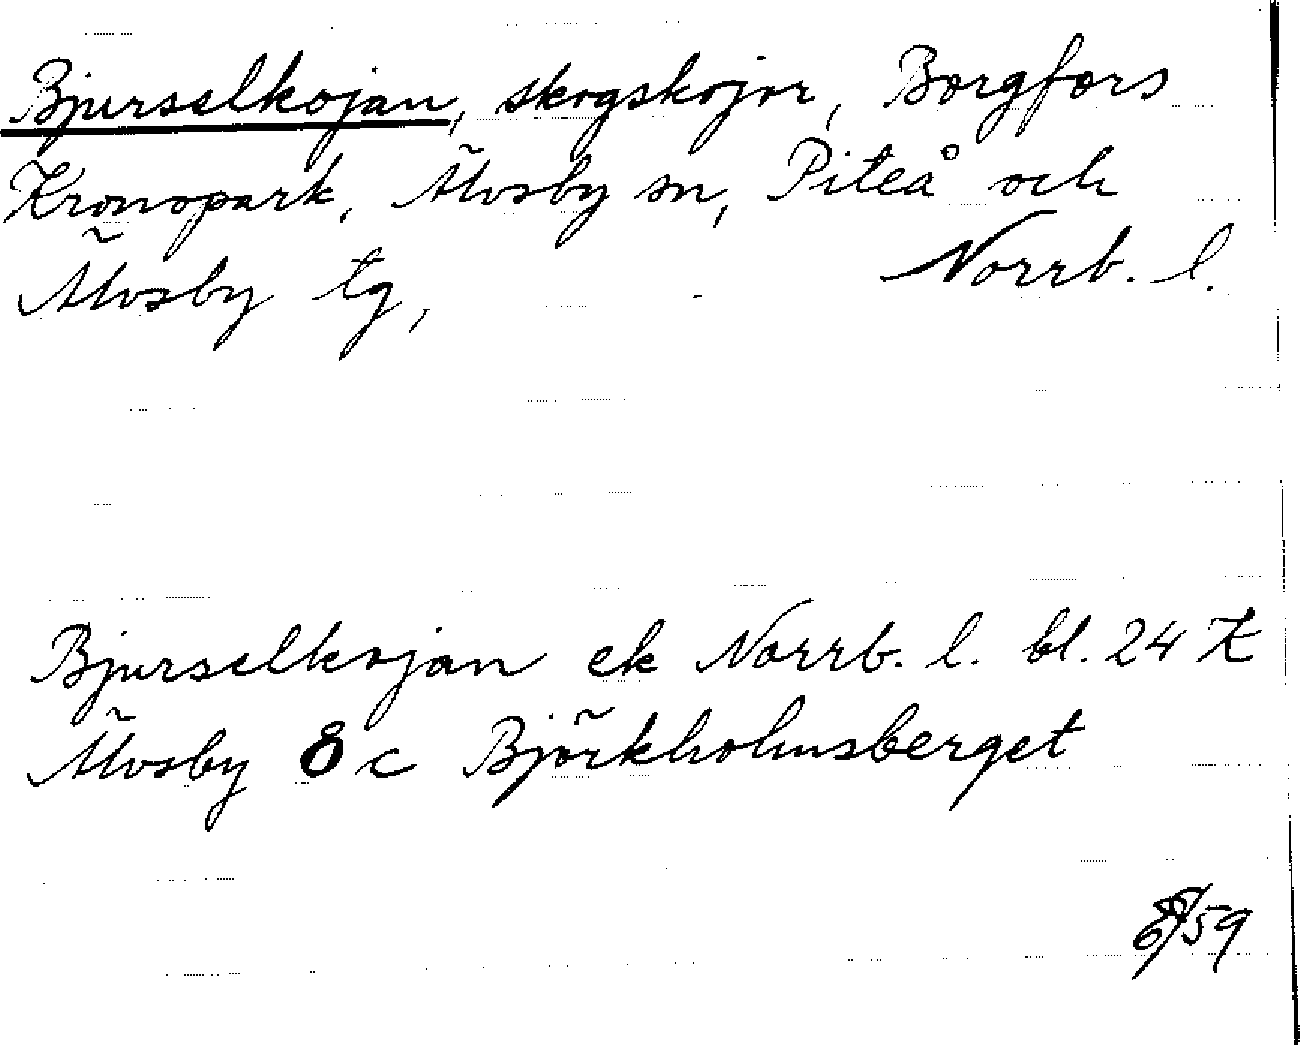 Bjurselkojan, skogskojor, Borgfors
Kronopark, Älvsby sn, Piteå och
Älvsby tg, Norrb. l.
Bjurselkojan ek Norrb. l. bl. 24 K
Älvsby 8 c Björkholmsberget